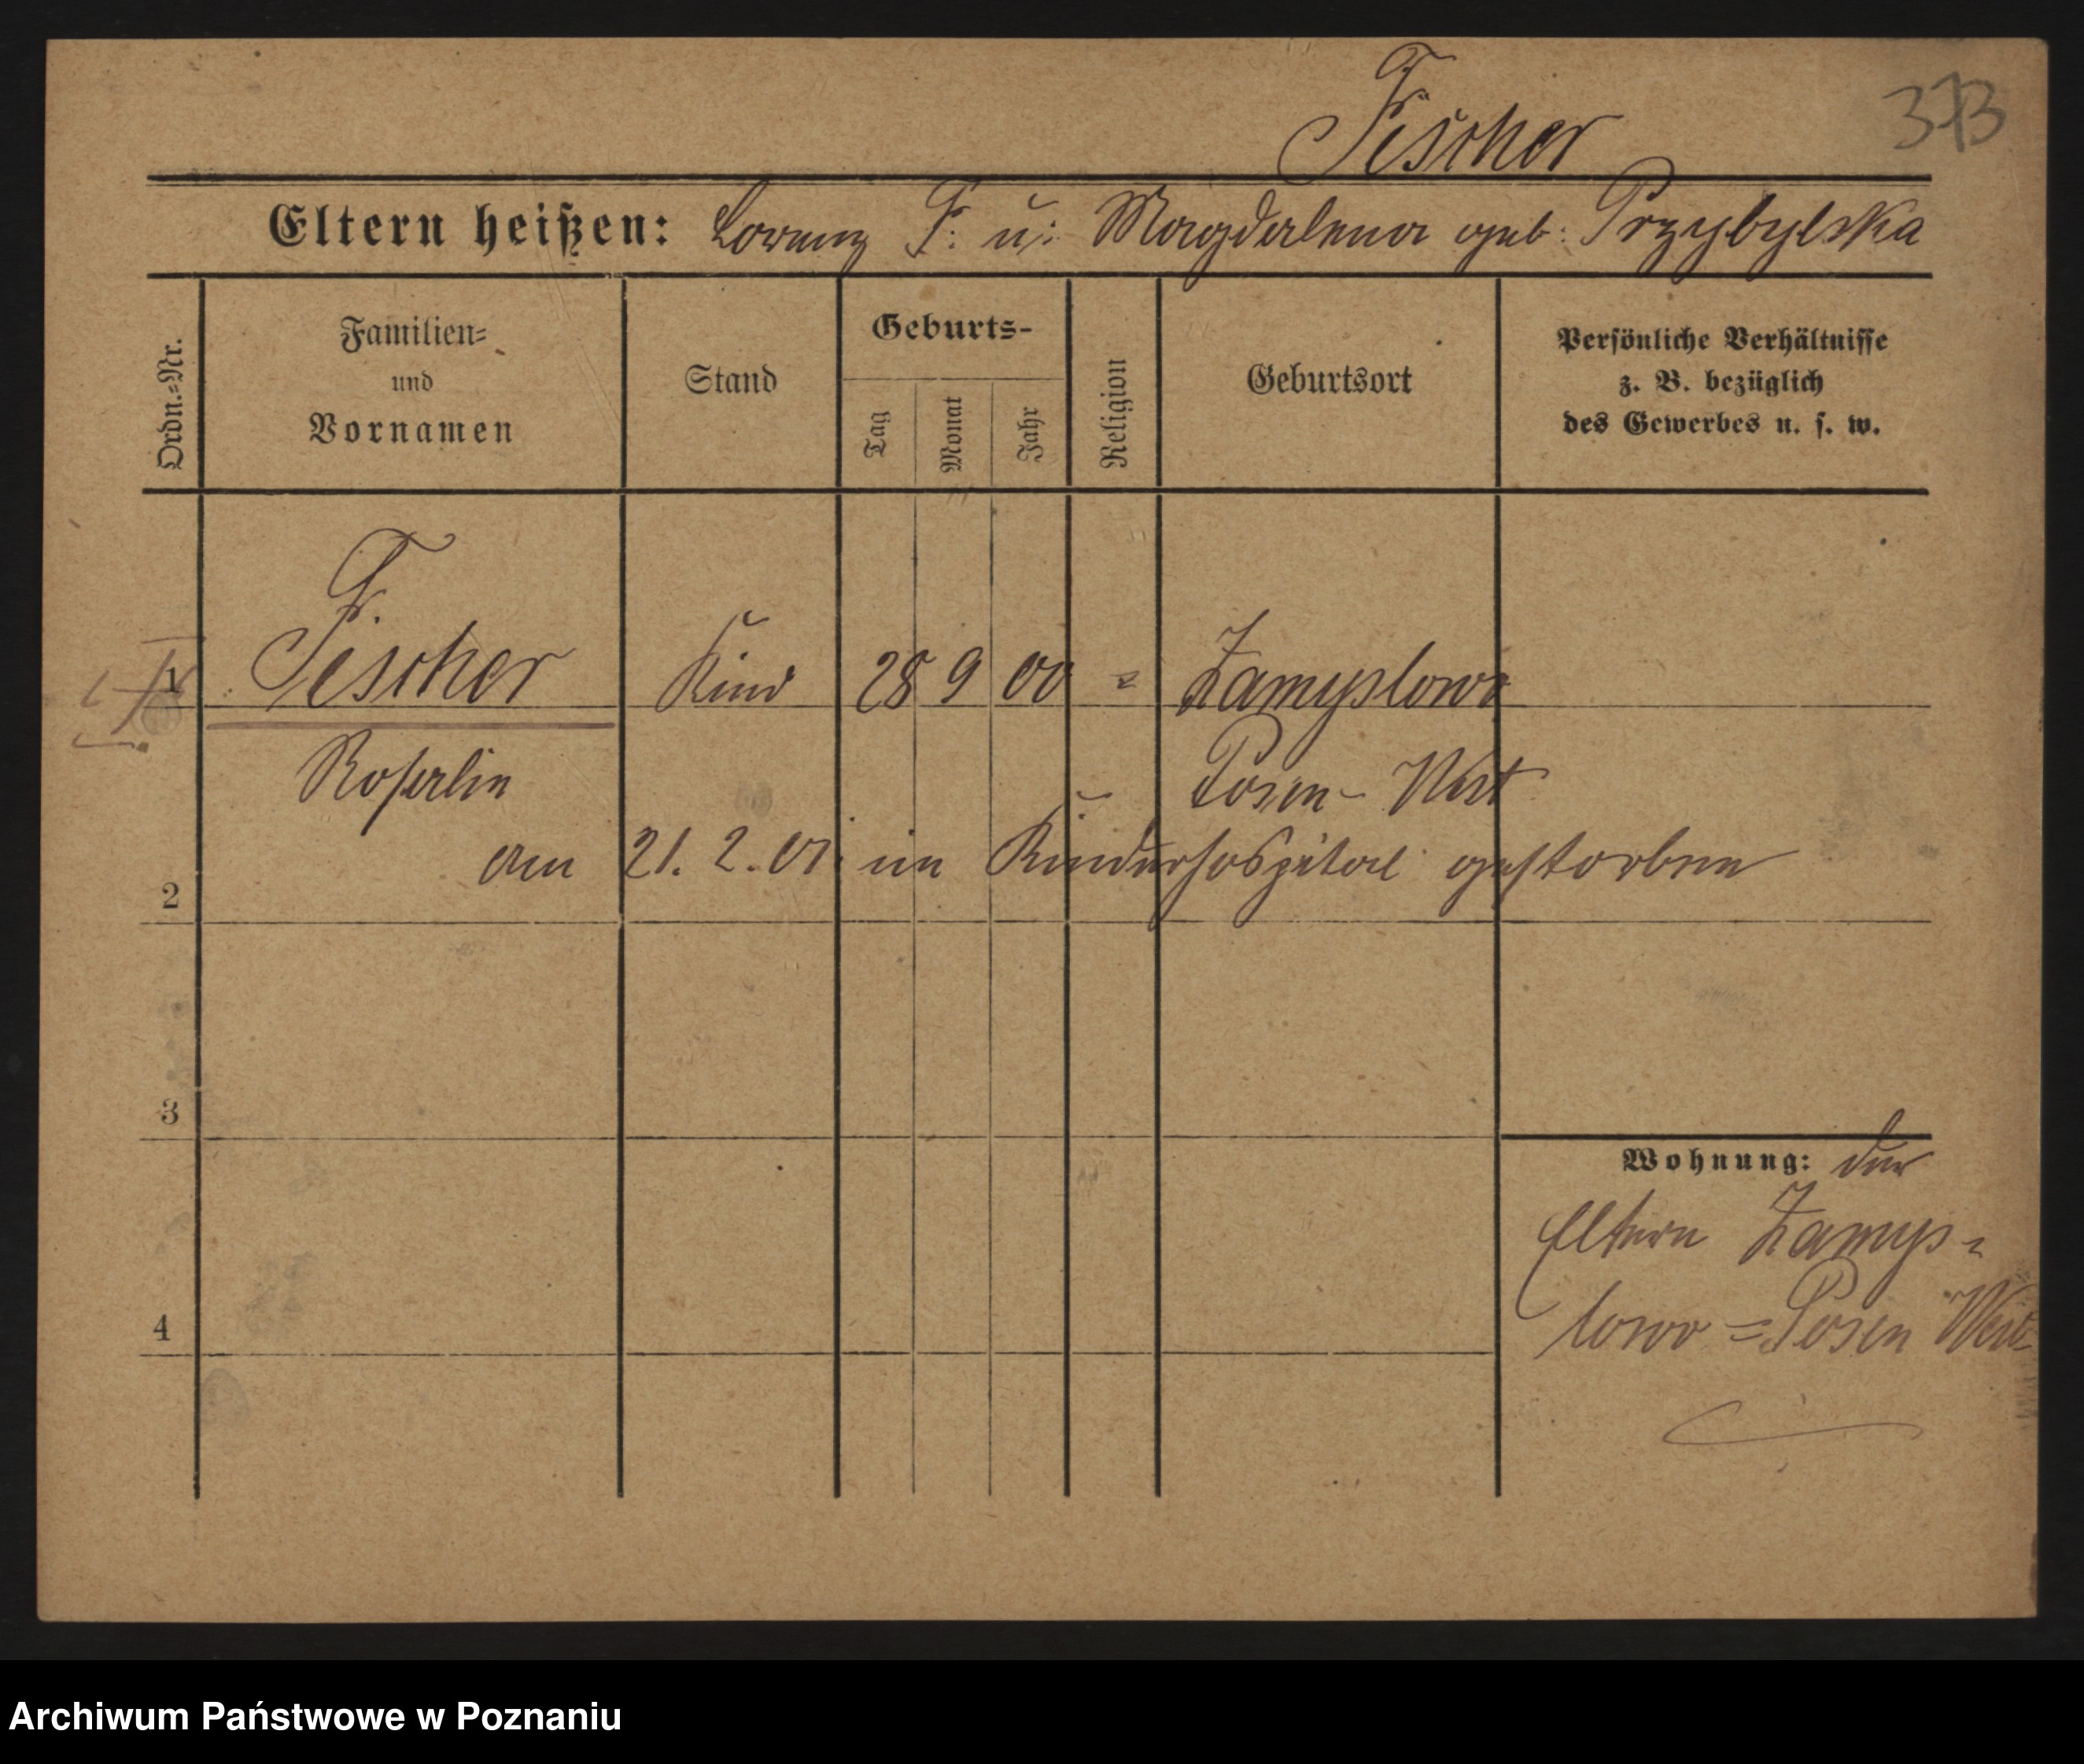 373
Fischer
Eltern heißen: Lorenz F. u. Magdalena geb. Przybylska
Ordn.=Nr.
Familien=
und
Vornamen
Stand
Geburts-
Tag
Monat
Jahr
Religion
Geburtsort
Persönliche Verhältnisse
z. B. bezüglich
des Gewerbes u. s. w.
1 Fischer Kind 28 9 00 = Zamyslowo
Rosalin Posen-West
am 21. 2. 01. im Kinderhospital gestorben
2
3
Wohnung: der
Eltern Zamys=
lowo = Posen West
4
Archiwum Państwowe w Poznaniu